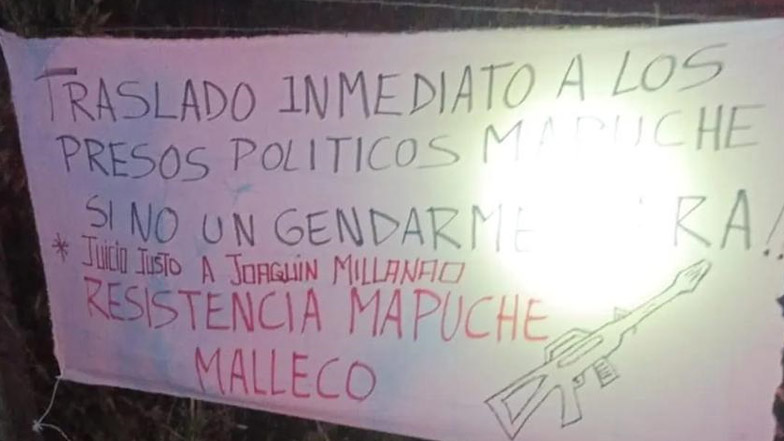 TRASLADO INMEDIATO A LOS
PRESOS POLITICOS MAPUCHE
SI NO UN GENDARME RA!!
* JUICIO JUSTO A JOAQUIN MILLANAO
RESISTENCIA MAPUCHE
MALLECO